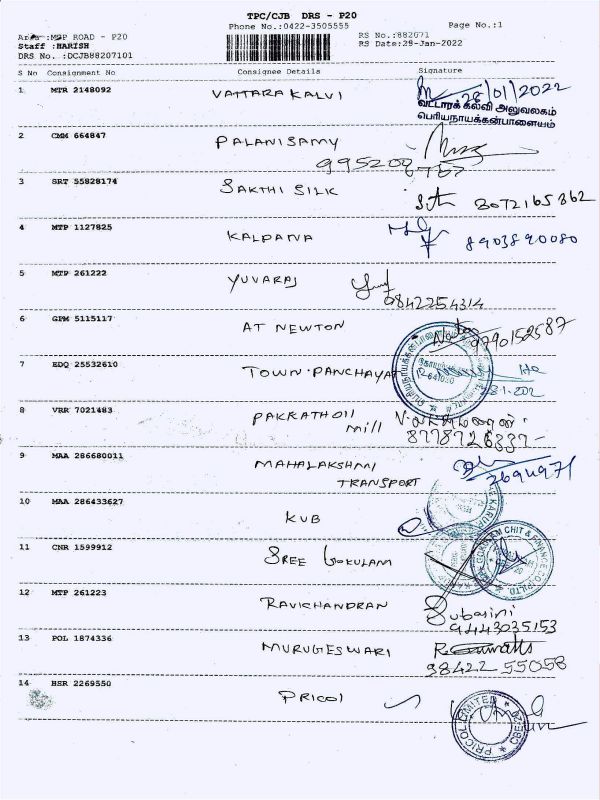 TPC/CJB DRS - P20
Phone No.:0422-3505555
Page No.:1
Area :MTP ROAD - P20
RS No.:882071
Staff :HARISH
RS Date:29-Jan-2022
DRS No. :DCJB88207101
S No Consignment No Consignee Details Signature
1 MTR 2148092 VATTARA KALVI 28/01/2022
வட்டாரக் கல்வி அலுவலகம்
பெரியநாயக்கன்பாளையம்
2 CMM 664847 PALANISAMY
3 SRT 55828174 SAKTHI SILK 8072165362
4 MTP 1127825 KALPANA 8903890080
5 MTP 261222 YUVARAJ
9842254314
6 GPM 5115117 AT NEWTON 9790152587
7 EDQ 25532610 TOWN.PANCHAYAT
8 VRR 7021483 PAKRATH OIL
MILL
9 MAA 286680011 MAHALAKSHMI
TRANSPORT
10 MAA 286433627 KVB
11 CNR 1599912 SREE GOKULAM
GOKULAM CHIT & FINANCE CO.(P)LTD.
12 MTP 261223 RAVICHANDRAN Subasini
9443035153
13 POL 1874336 MURUGESWARI
98422 55058
14 HSR 2269550 PRICOL
PRICOL LIMITED